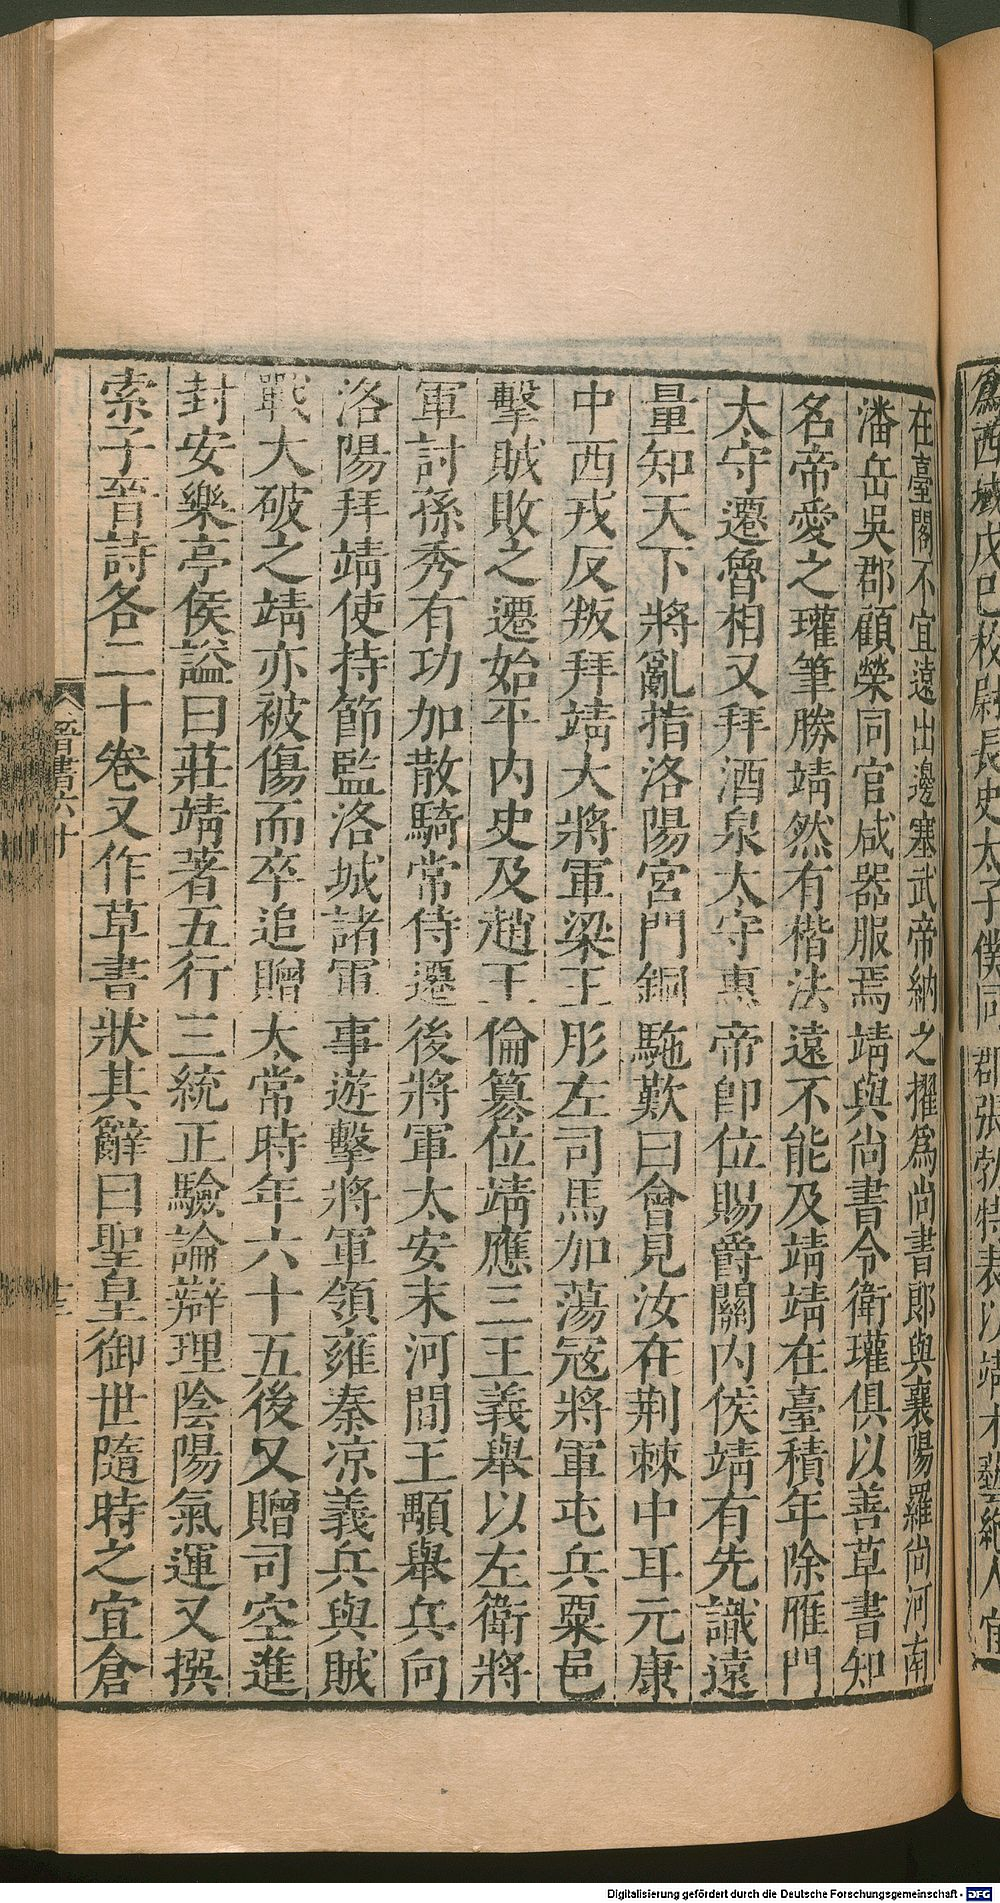 爲西域戊巳校尉長史太子僕同郡張勃特表以靖才藝絕人宜
在臺閣不宜遠出邊塞武帝納之擢爲尚書郎與襄陽羅尚河南
潘岳吳郡顧榮同官咸器服焉靖與尚書令衛瓘俱以善草書知
名帝愛之瓘筆勝靖然有楷法遠不能及靖靖在臺積年除雁門
太守遷魯相又拜酒泉太守惠帝卽位賜爵關內侯靖有先識遠
量知天下將亂指洛陽宮門銅駞歎曰會見汝在荆棘中耳元康
中西戎反叛拜靖大將軍梁王肜左司馬加蕩寇將軍屯兵粟邑
擊賊敗之遷始平內史及趙王倫篡位靖應三王義舉以左衛將
軍討孫秀有功加散騎常侍遷後將軍太安末河間王顒舉兵向
洛陽拜靖使持節監洛城諸軍事遊擊將軍領雍秦凉義兵與賊
戰大破之靖亦被傷而卒追贈太常時年六十五後又贈司空進
封安樂亭侯謚曰莊靖著五行三統正驗論辯理陰陽氣運又撰
索子晉詩各二十卷又作草書狀其辭曰聖皇御世隨時之宜倉
晉書六十
十三
Digitalisierung gefördert durch die Deutsche Forschungsgemeinschaft - DFG